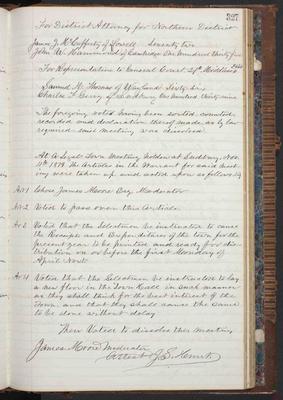 327
For District Attorney for Northern District
James J. McCafferty of Lowell Seventy two
John W. Hammond of Cambridge One Hundred Thirty five
For Representative to General Court 29th Middlesex Dist
Samuel H. Thomas of Wayland Sixty Six
Charles F. Gerry of Sudbury One Hundred Thirty nine
The foregoing votes having been sorted, counted,
recorded and declaration thereof made as by law
required said meeting was dissolved
At a Legal Town Meeting holden at Sudbury, Nov.
The Articles in the Warrant for said meet-
ing were taken up and acted upon as follows viz
Art 1 Chose James Moore Esq. Moderator
Art 2 Voted to pass over this Article
Art 3 Voted that the Selectmen be instructed to cause
the Receipts and Expenditures of the town for the
present year to be printed and ready for dis-
tribution on or before the first Monday of
April next
Art 4 Voted that the Selectmen be instructed to lay
a new floor in the Town Hall in such manner
as they shall think for the best interest of the
town and that they shall cause the same
to be done without delay
Then Voted to dissolve this meeting
James Moore Moderator
Attest J. S. Hunt